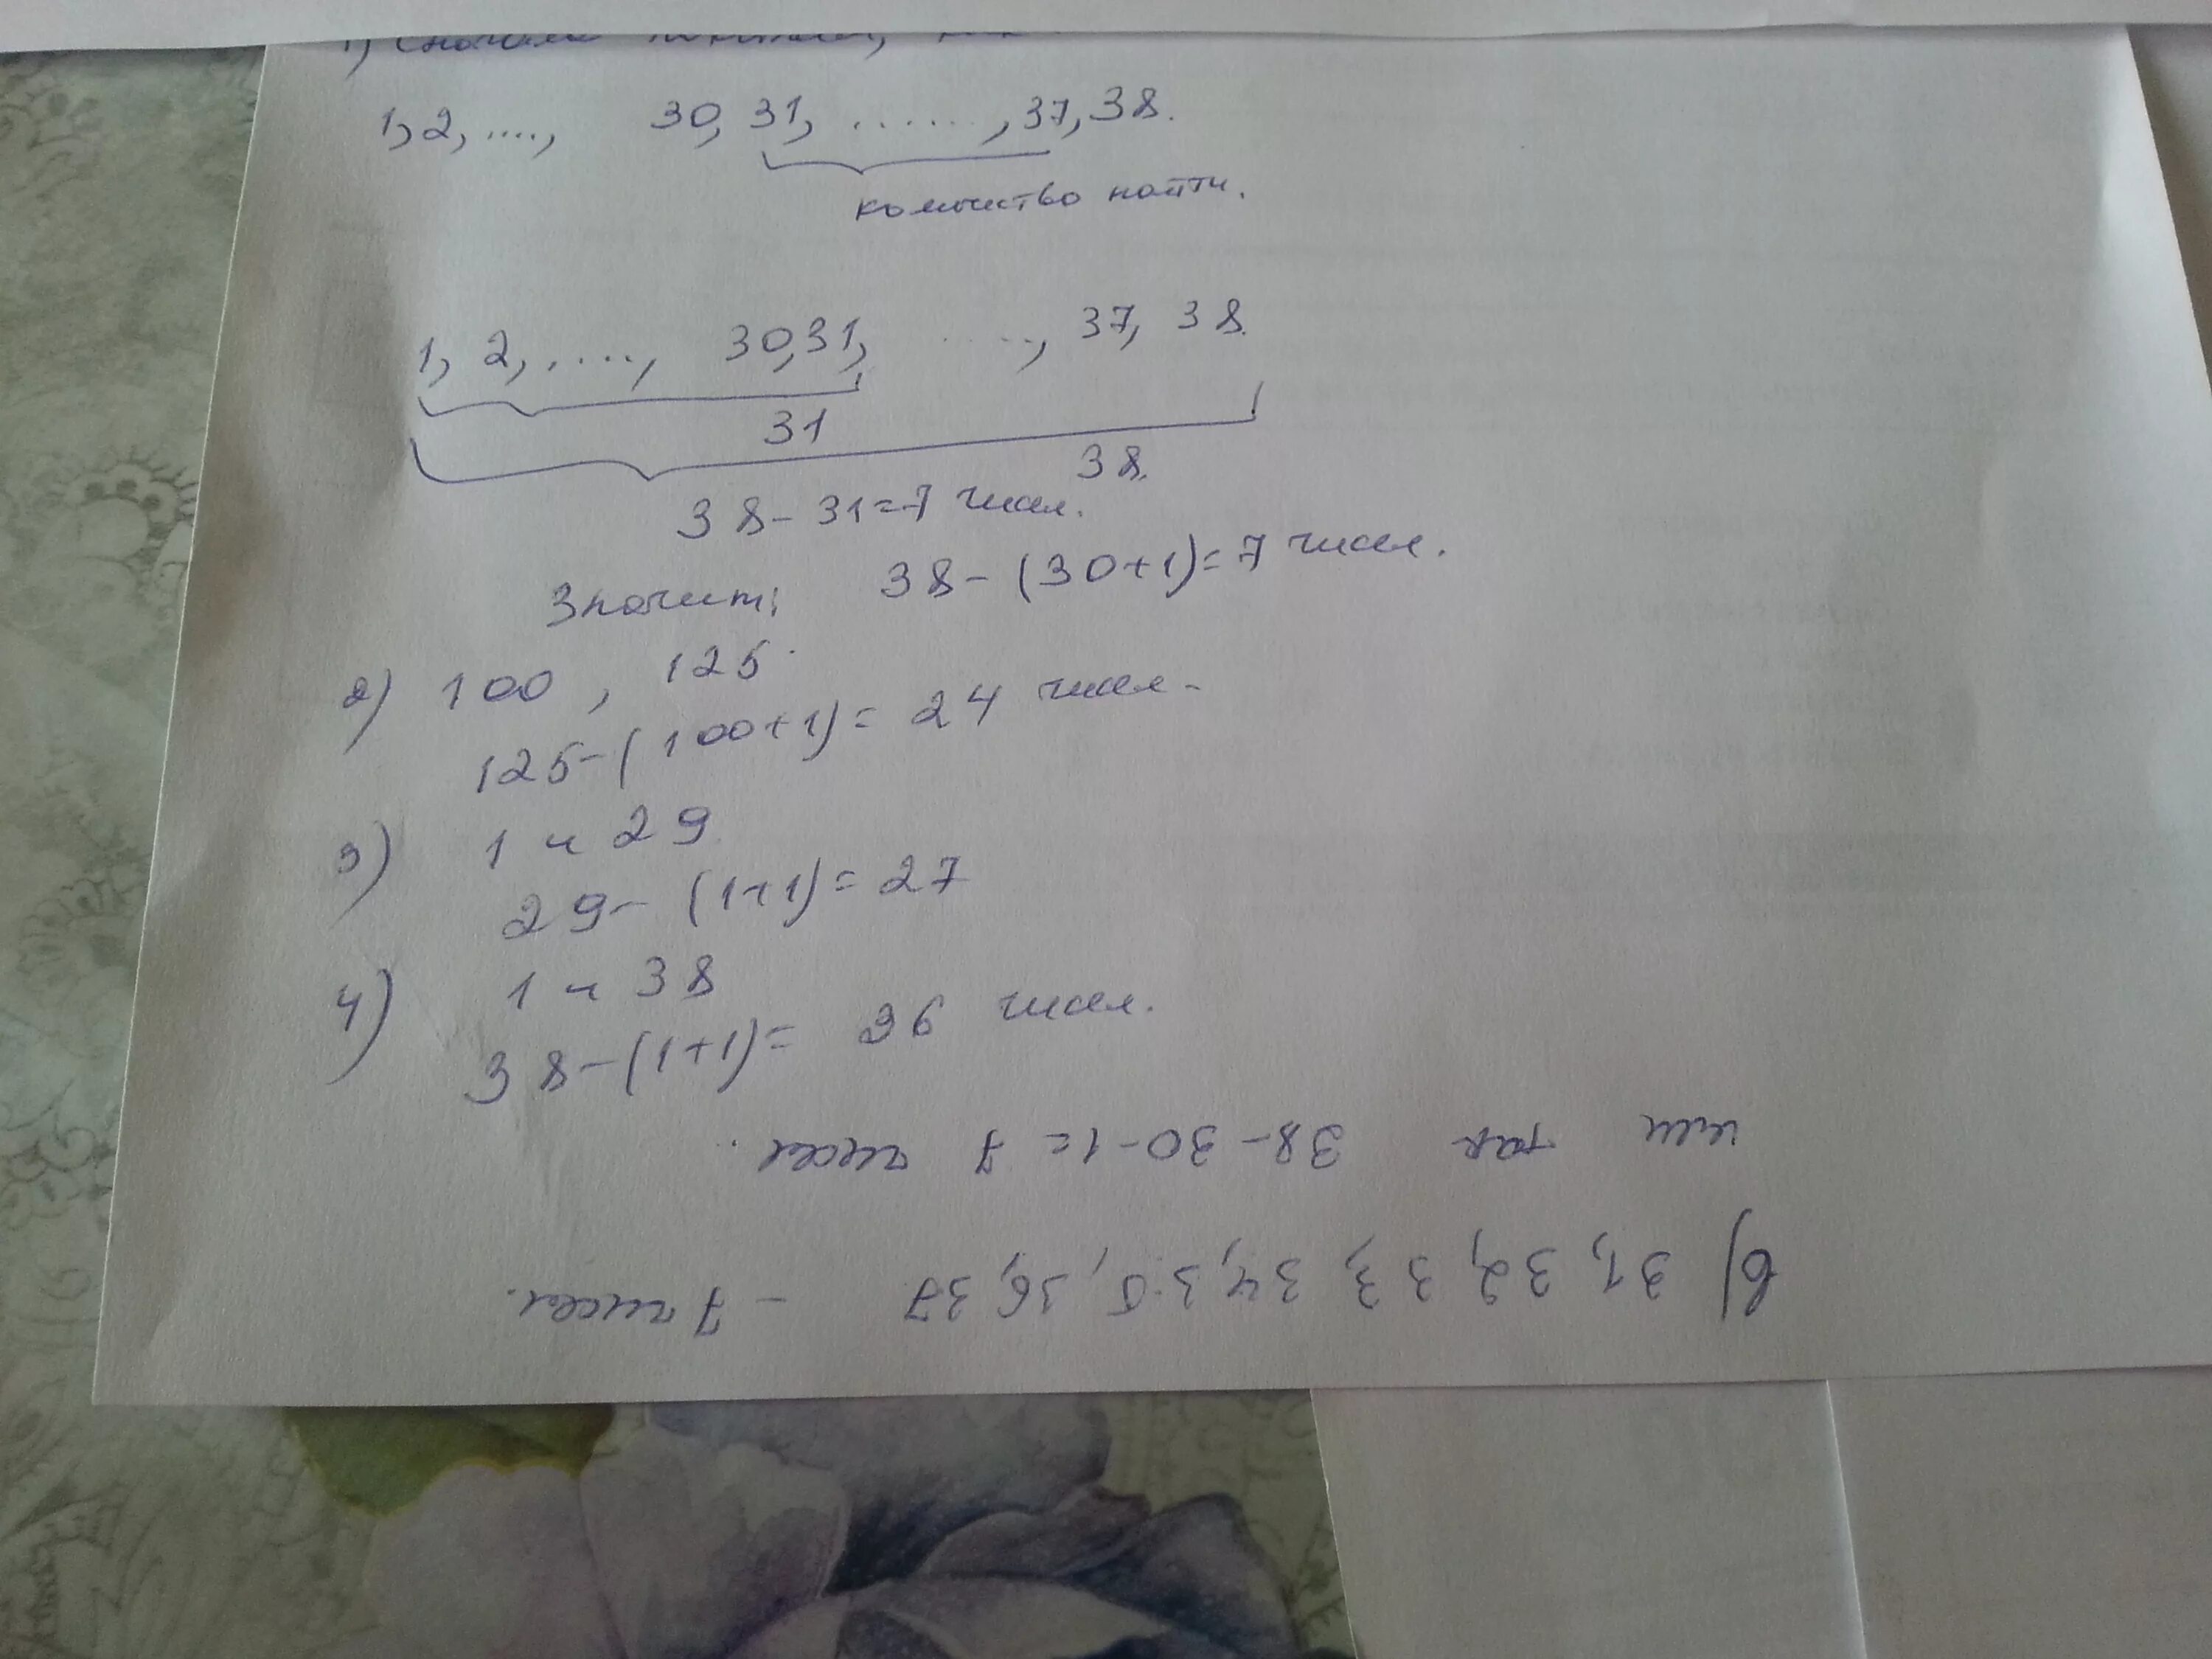 1, 2, ...., 30, 31, ......, 37, 38.
количество найти.
1, 2, ...., 30, 31, ...., 37, 38.
31
38.
38 - 31 = 7 чисел.
Значит: 38 - (30+1) = 7 чисел.
2) 100, 125.
125 - (100+1) = 24 чисел.
3) 1 и 29
29 - (1+1) = 27
4) 1 и 38
38 - (1+1) = 36 чисел.
или так 38 - 30 - 1 = 7 чисел.
в) 31, 32, 33, 34, 35, 36, 37 - 7 чисел.